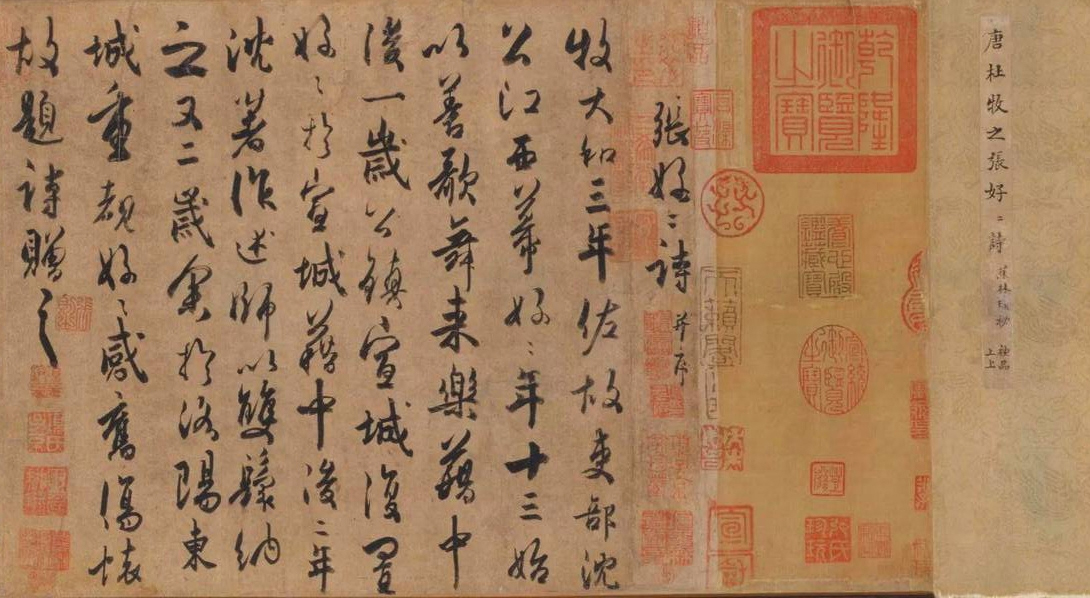 唐杜牧之張好〻詩
蕉林
極品
上上
乾隆御覽之寶
養心殿鑑藏寶
宣統御覽之寶
張好〻詩并序
牧大和三年佐故吏部沈
公江西幕好〻年十三始
以善歌舞来樂藉中
後一歲公鎮宣城復置
好〻於宣城藉中後二年
沈著作述師以雙鬟納
之又二歲余於洛陽東
城重覩好〻感舊傷懷
故題詩贈之